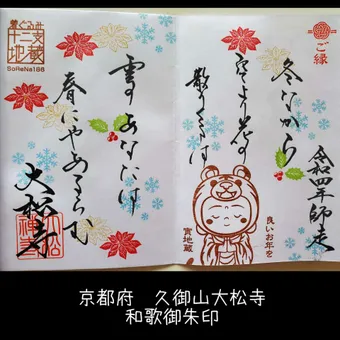 ご縁
令和四年師走
冬ながら
空より花の
散りくるは
良いお年を
寅地蔵
雲のあなたは
春にやあるらむ
大松寺
着ぐるみ
十二支
地蔵
SoReNa188
京都府　久御山大松寺
和歌御朱印